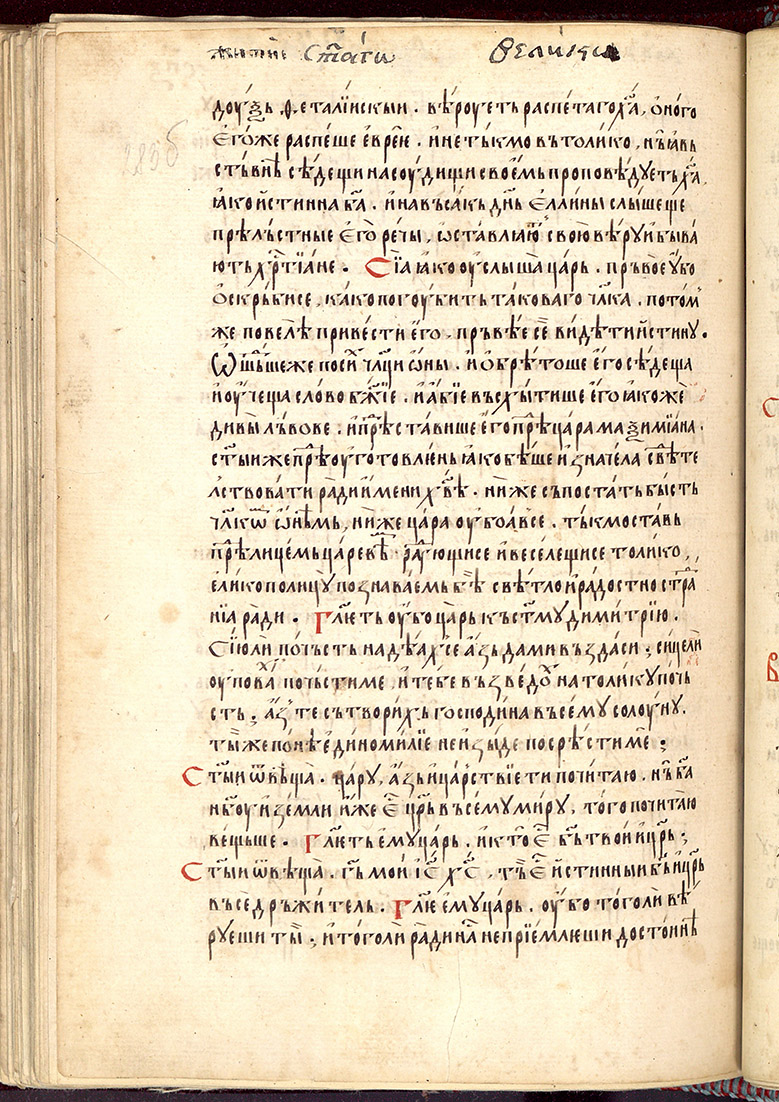 Ст҃аго Велик
доуѯь Ѳеталїискыи . вѣроуеть распетаго х҃а , оного
егоже распеше еврею . и не тькмо въ толико , нь ꙗвь
ствнѣ сѣдещи на соудищи своемь проповѣдуеть х҃а ,
ꙗко истинна б҃а . и на въсакь дн҃ь еллины слышеще
прѣльстные его речы , ѡставлꙗють свою вѣру и быва
ють хр҃тїане . Сїа ꙗко оуслыша царь . прьвое убо
оскрьбисе , како погоубить таковаго чл҃ка . потом
же повелѣ привести его . прьвѣе се видѣти истину .
Ѡшьше же посл҃ чл҃ци ѡны . и обрѣтоше его сѣдеща
и оучеща слово бж҃їе . и абїе въсхытише его ꙗкоже
дивы львове . и прѣставише его прѣ цара маѯимїана .
ст҃ыи же прѣоуготовлень ꙗко бѣше изначела свѣте
лствовати ради имени хв҃ѣ . ниже съпостать бысть
чл҃кѡ ѡнѣмь , ниже цара оубоавсе . тькмо ставь
прѣ лицемь царевѣ . радующисе и веселещисе толико ,
елико по лицу познаваемь бѣ свѣтло и радостно стра
нїа ради . Гл҃еть оубо царь къ ст҃му димитрїю .
Сїю ли почьсть надѣахсе азь да ми въздаси ; сице ли
оуповах почьсти ме , и тебе възведох на толику почь
сть ; аз те сътворихь господина въсему солоуну .
ты же понѣ едино милїе не изыде посрѣсти ме ;
Ст҃ыи ѡвѣща . цару , азь и царствїе ти почитаю . нь б҃а
нб҃оу и земли иже е цр҃ь въсему миру , того почитаю
вещьше . Гл҃еть ему царь . и кто е б҃ь твои и цр҃ь ;
Ст҃ыи ѡвѣща . г҃ь мои і҃с х҃с , тъ е истинныи б҃ь и цр҃ь
въседръжитель . Гл҃е ему царь . оубо того ли вѣ
руеши ты ; и того ли ради на не прїемлюеши достоинѣ